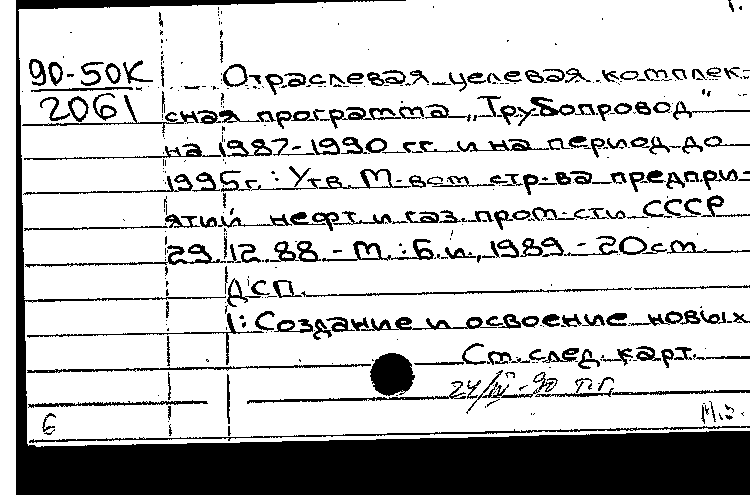 1.
90-50К
2061
Отраслевая целевая комплек-
сная программа „Трубопровод"
на 1987-1990 гг. и на период до
1995г.: Утв. М-вом стр-ва предпри-
ятий нефт. и газ. пром-сти СССР
29.12.88.-М.: Б.и., 1989.-20см.
ДСП.
1: Создание и освоение новых
См. след. карт.
24/VII-90 Т.Г.
6